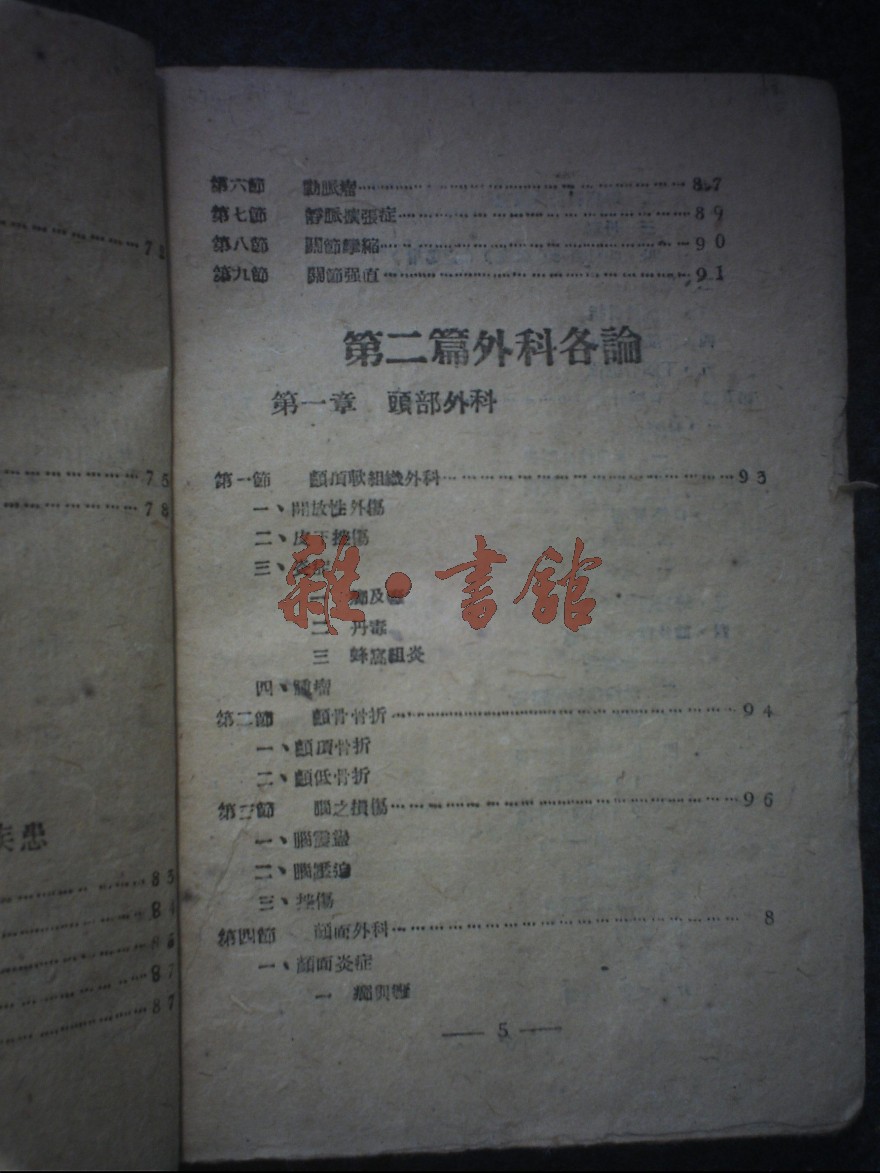 72
75
78
疾患
85
84
86
87
87
第六節 動脈瘤 87
第七節 靜脈擴張症 89
第八節 關節攣縮 90
第九節 關節强直 91
第二篇外科各論
第一章 頭部外科
第一節 顱頂軟組織外科 93
一、開放性外傷
二、皮下挫傷
三、炎症
雜·書館
一 癤及癰
二 丹毒
三 蜂窩組炎
四、腫瘤
第二節 顱骨骨折 94
一、顱頂骨折
二、顱低骨折
第三節 腦之損傷 96
一、腦震盪
二、腦壓迫
三、挫傷
第四節 顔面外科 8
一、顔面炎症
一
— 5 —